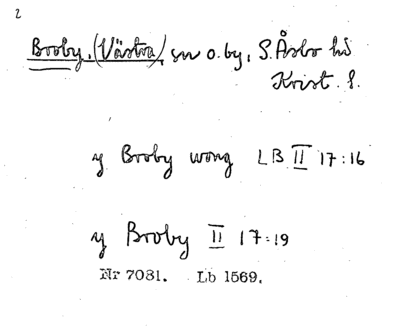 2
Broby, (Västra), sn o. by, S. Åsbo hd
Krist. l.
y Broby wong LB II 17:16
y Broby II 17:19
Nr 7031. Lb 1569.